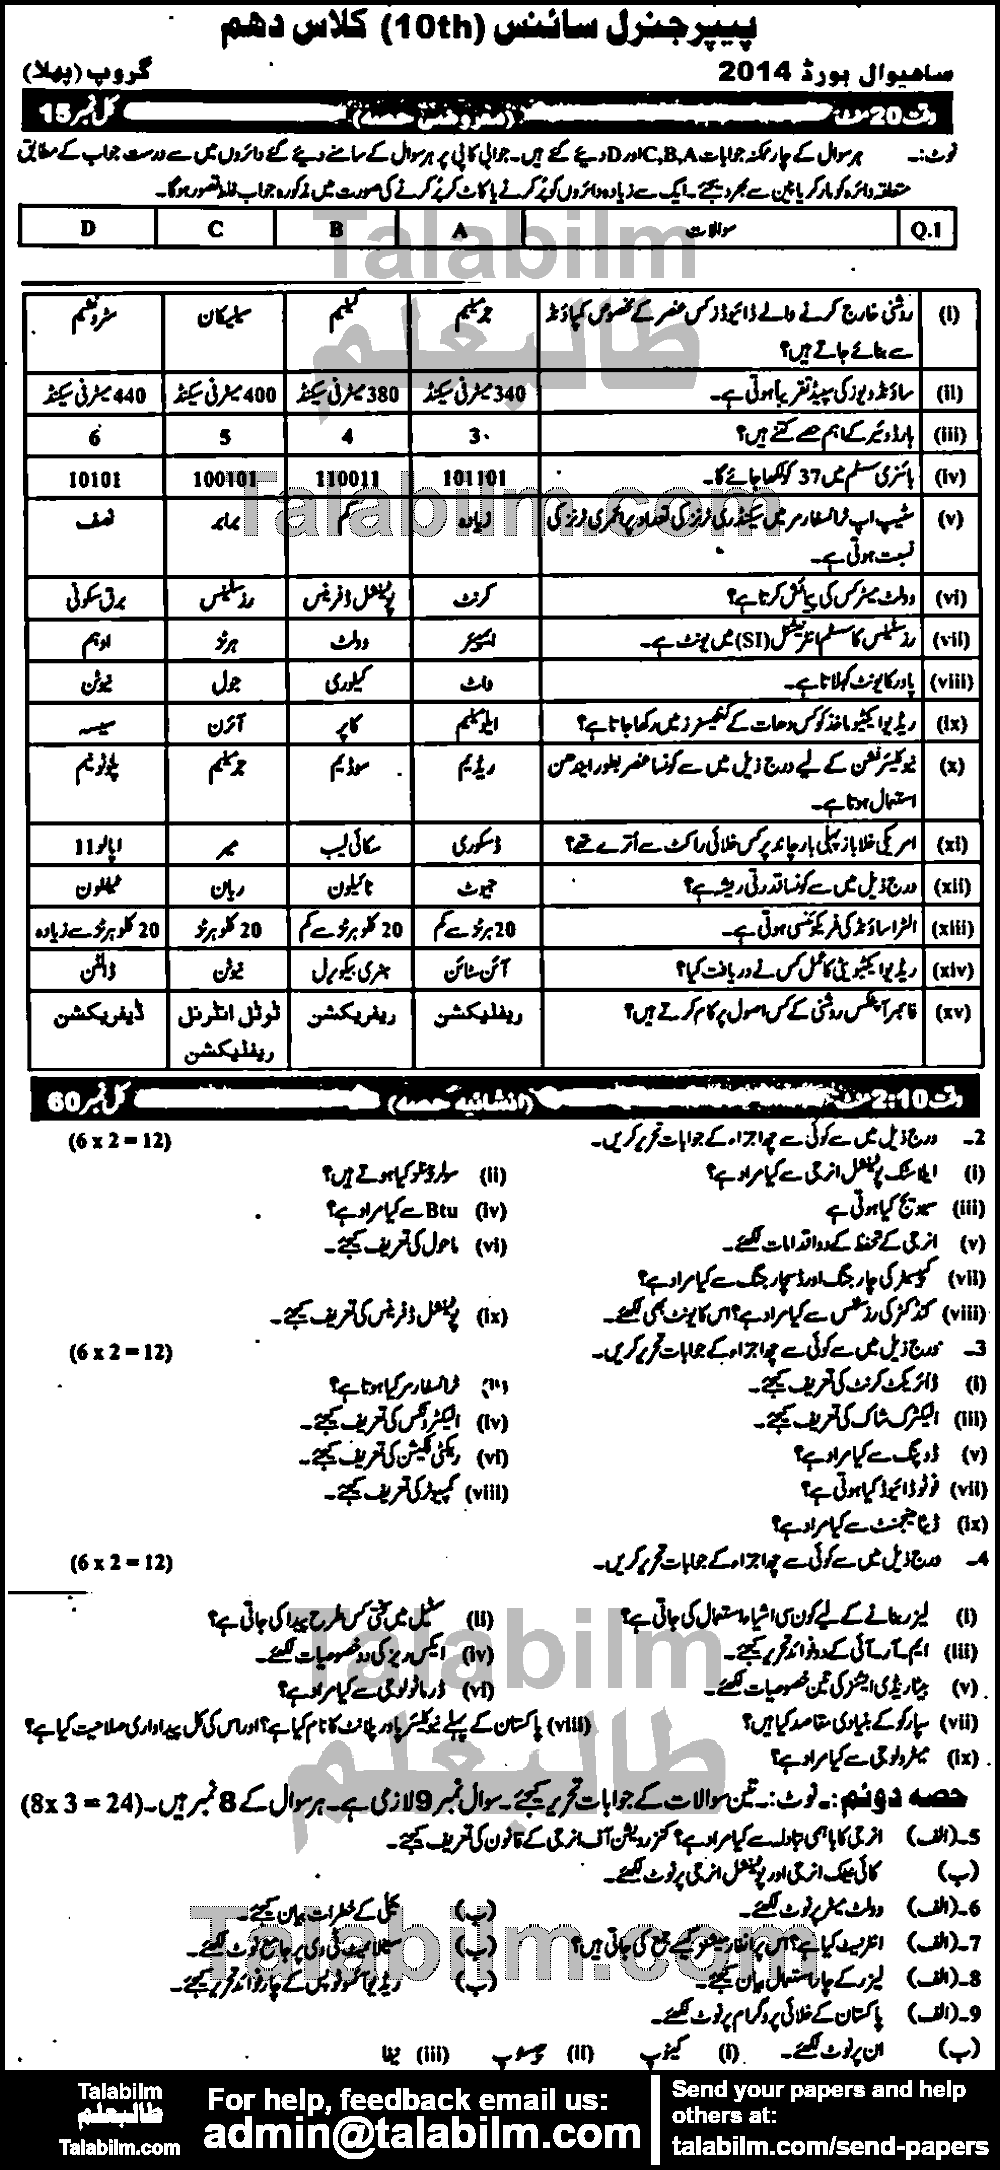 پیپر جنرل سائنس (10th) کلاس دهم
ساهیوال بورڈ 2014 گروپ (پهلا)
وقت 20 منٹ (معروضی حصه) کل نمبر 15
نوٹ:۔ ہر سوال کے چار ممکنہ جوابات C,B,A اور D دیئے گئے ہیں۔ جوابی کاپی پر ہر سوال کے سامنے دیئے گئے دائروں میں سے درست جواب کے مطابق
متعلقہ دائرہ کو مارکر یا پین سے بھر دیجئے۔ ایک سے زیادہ دائروں کو پُر کرنے یا کاٹ کر پُر کرنے کی صورت میں مذکورہ جواب غلط تصور ہوگا۔
Q.1 سوالات A B C D
(i) روشنی خارج کرنے والے ڈائیوڈز کس عنصر کے مخصوص کمپاؤنڈ سے بنائے جاتے ہیں؟ جرمینیم گیلیم سیلیکان سٹرونٹیم
(ii) ساؤنڈ ویوز کی سپیڈ تقریباً ہوتی ہے۔ 340 میٹر فی سیکنڈ 380 میٹر فی سیکنڈ 400 میٹر فی سیکنڈ 440 میٹر فی سیکنڈ
(iii) ہارڈ ویئر کے اہم حصے کتنے ہیں؟ 3 4 5 6
(iv) بائنری سسٹم میں 37 کو لکھا جائے گا۔ 101101 110011 100101 10101
(v) سٹیپ اپ ٹرانسفارمر میں سیکنڈری ٹرنز کی تعداد پرائمری ٹرنز کی نسبت ہوتی ہے۔ زیادہ کم برابر نصف
(vi) وولٹ میٹر کس کی پیمائش کرتا ہے؟ کرنٹ پوٹینشل ڈفرینس رزسٹینس برق سکونی
(vii) رزسٹینس کا سسٹم انٹرنیشنل (SI) میں یونٹ ہے۔ ایمپیئر وولٹ ہرٹز اوہم
(viii) پاور کا یونٹ کہلاتا ہے۔ واٹ کیلوری جول نیوٹن
(ix) ریڈیو ایکٹیو ماخذ کو کس دھات کے کنٹینرز میں رکھا جاتا ہے؟ ایلومینیم کاپر آئرن سیسہ
(x) نیوکلیئر فشن کے لیے درج ذیل میں سے کونسا عنصر بطور ایندھن استعمال ہوتا ہے۔ ریڈیم سوڈیم جرمینیم پلوٹونیم
(xi) امریکی خلاباز پہلی بار چاند پر کس خلائی راکٹ سے اترے تھے؟ ڈسکوری سکائی لیب میر اپالو 11
(xii) درج ذیل میں سے کونسا قدرتی ریشہ ہے؟ جیوٹ نائیلون ریان ٹیفلون
(xiii) الٹراساؤنڈ کی فریکوئنسی ہوتی ہے۔ 20 ہرٹز سے کم 20 کلو ہرٹز سے کم 20 کلو ہرٹز 20 کلو ہرٹز سے زیادہ
(xiv) ریڈیو ایکٹیویٹی کا عمل کس نے دریافت کیا؟ آئن سٹائن ہنری بیکورل نیوٹن ڈالٹن
(xv) فائبر آپٹکس روشنی کے کس اصول پر کام کرتے ہیں؟ ریفلیکشن ریفریکشن ٹوٹل انٹرنل ریفلیکشن ڈیفریکشن
وقت 2:10 منٹ (انشائیه حصه) کل نمبر 60
2۔ درج ذیل میں سے کوئی سے چھ اجزاء کے جوابات تحریر کریں۔ (6 x 2 = 12)
(i) ایلاسٹک پوٹینشل انرجی سے کیا مراد ہے؟ (ii) سولر ونڈو کیا ہوتے ہیں؟
(iii) سیویج کیا ہوتی ہے (iv) Btu سے کیا مراد ہے؟
(v) انرجی کے تحفظ کے دو اقدامات لکھئے۔ (vi) ماحول کی تعریف کیجئے۔
(vii) کپیسٹر کی چارجنگ اور ڈسچارجنگ سے کیا مراد ہے؟
(viii) کنڈکٹر کی رزسٹنس سے کیا مراد ہے؟ اس کا یونٹ بھی لکھئے۔ (ix) پوٹینشل ڈفرینس کی تعریف کیجئے۔
3۔ درج ذیل میں سے کوئی سے چھ اجزاء کے جوابات تحریر کریں۔ (6 x 2 = 12)
(i) ڈائریکٹ کرنٹ کی تعریف کیجئے۔ (ii) ٹرانسفارمر کیا ہوتا ہے؟
(iii) الیکٹرک شاک کی تعریف کیجئے۔ (iv) الیکٹرونکس کی تعریف کیجئے۔
(v) ڈوپنگ سے کیا مراد ہے؟ (vi) ریکٹی فکیشن کی تعریف کیجئے۔
(vii) فوٹو ڈائیوڈ کیا ہوتی ہے؟ (viii) کمپیوٹر کی تعریف کیجئے۔
(ix) ڈیٹا مینجمنٹ سے کیا مراد ہے؟
4۔ درج ذیل میں سے کوئی سے چھ اجزاء کے جوابات تحریر کریں۔ (6 x 2 = 12)
(i) لیزر بنانے کے لیے کون سی اشیاء استعمال کی جاتی ہے؟ (ii) سٹیل میں سختی کس طرح پیدا کی جاتی ہے؟
(iii) ایم۔آر۔آئی کے دو فوائد تحریر کیجئے۔ (iv) ایکس ریز کی دو خصوصیات لکھئے۔
(v) بیٹا ریڈی ایشنز کی تین خصوصیات لکھئے۔ (vi) ڈرماٹولوجی سے کیا مراد ہے؟
(vii) سپارکو کے بنیادی مقاصد کیا ہیں؟ (viii) پاکستان کے پہلے نیوکلیئر پاور پلانٹ کا نام کیا ہے؟ اور اس کی کل پیداواری صلاحیت کیا ہے؟
(ix) میٹرولوجی سے کیا مراد ہے؟
حصه دوئم:۔ نوٹ:۔ تین سوالات کے جوابات تحریر کیجئے۔ سوال نمبر 9 لازمی ہے۔ ہر سوال کے 8 نمبر ہیں۔ (8x 3 = 24)
5۔ (الف) انرجی کا باہمی تبادلہ سے کیا مراد ہے؟ کنزرویشن آف انرجی کے قانون کی تعریف کیجئے۔
(ب) کائی نیٹک انرجی اور پوٹینشل انرجی پر نوٹ لکھئے۔
6۔ (الف) وولٹ میٹر پر نوٹ لکھئے۔ (ب) بجلی کے خطرات بیان کیجئے۔
7۔ (الف) انٹرنیٹ کیا ہے؟ اس پر انفارمیشنز کیسے جمع کی جاتی ہیں؟ (ب) سیٹلائیٹ ٹی وی پر جامع نوٹ لکھئے۔
8۔ (الف) لیزر کے چار استعمال بیان کیجئے۔ (ب) ریڈیو آئسوٹوپس کے چار فوائد تحریر کیجئے۔
9۔ (الف) پاکستان کے خلائی پروگرام پر نوٹ لکھئے۔
(ب) ان پر نوٹ لکھئے۔ (i) کینوپ (ii) چسنوپ (iii) نیفا
Talabilm
طالبعلم
Talabilm.com
Talabilm
طالبعلم
Talabilm.com
Talabilm
طالبعلم
Talabilm.com
For help, feedback email us:
admin@talabilm.com
Send your papers and help
others at:
talabilm.com/send-papers